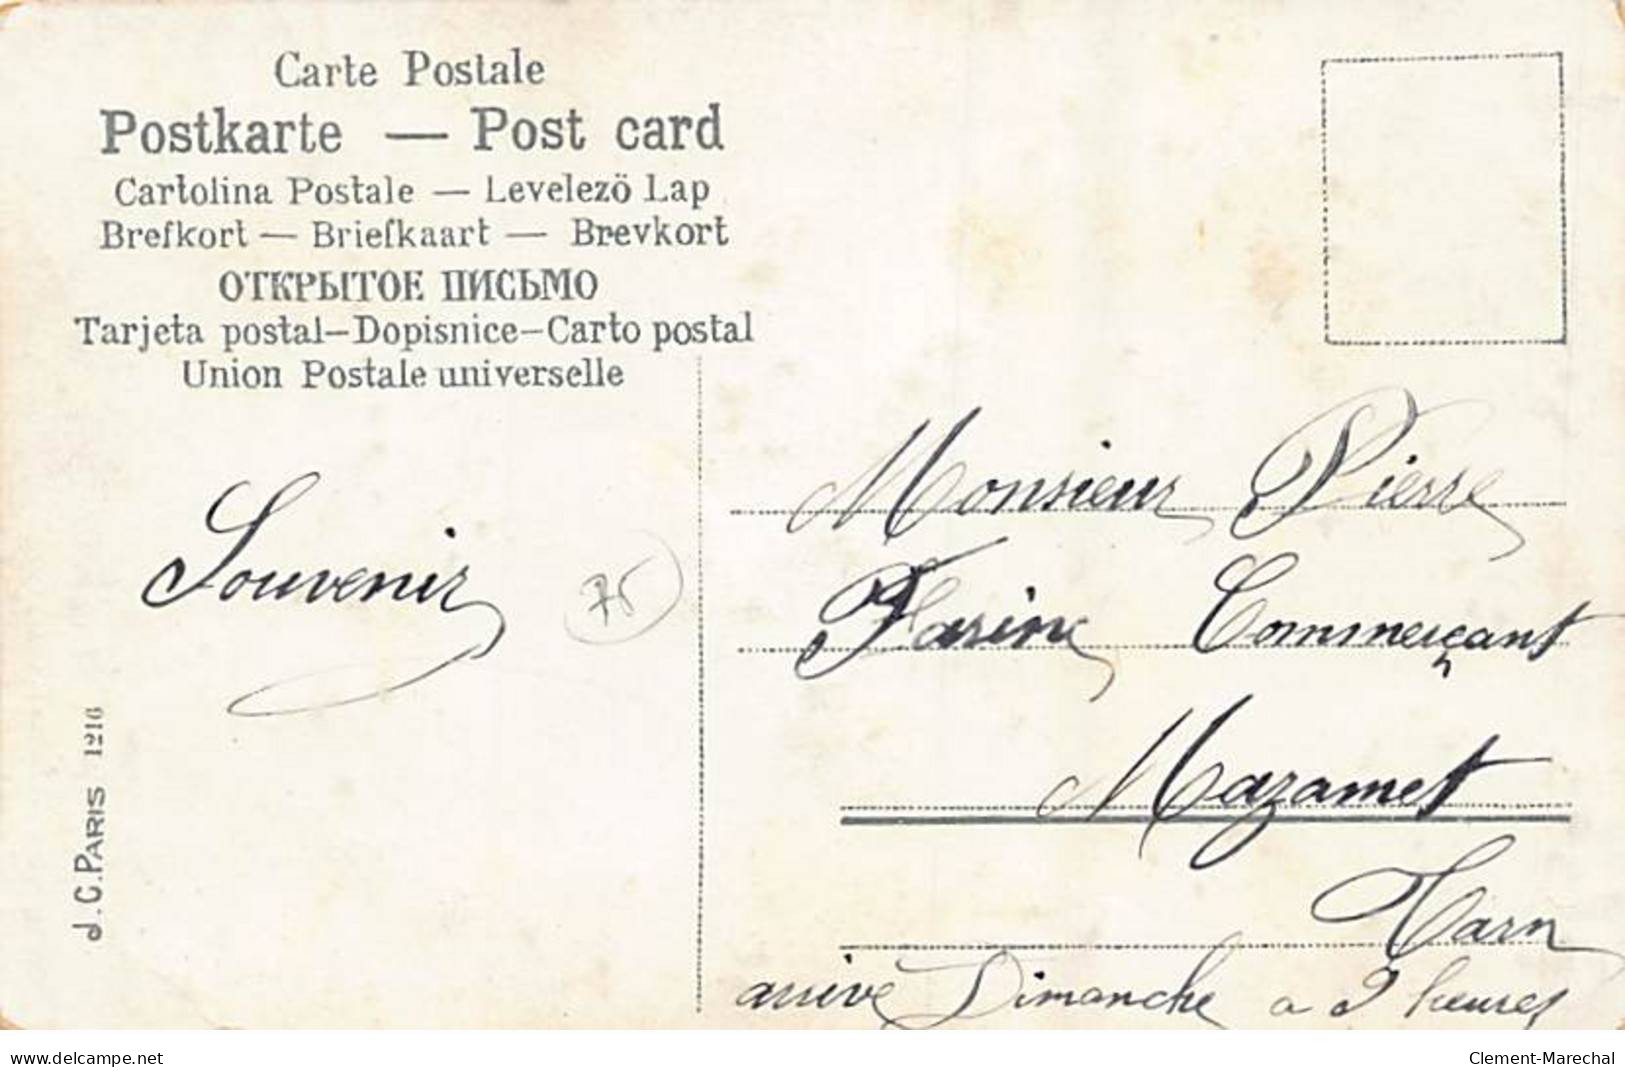 Carte Postale
Postkarte — Post card
Cartolina Postale — Levelező Lap
Brefkort — Briefkaart — Brevkort
ОТКРЫТОЕ ПИСЬМО
Tarjeta postal–Dopisnice–Carto postal
Union Postale universelle
Souvenir
75
J.C. PARIS 1216
Monsieur Pierre
Farine Commerçant
Mazamet
Tarn
arrive Dimanche a 2 heures
www.delcampe.net
Clement-Marechal